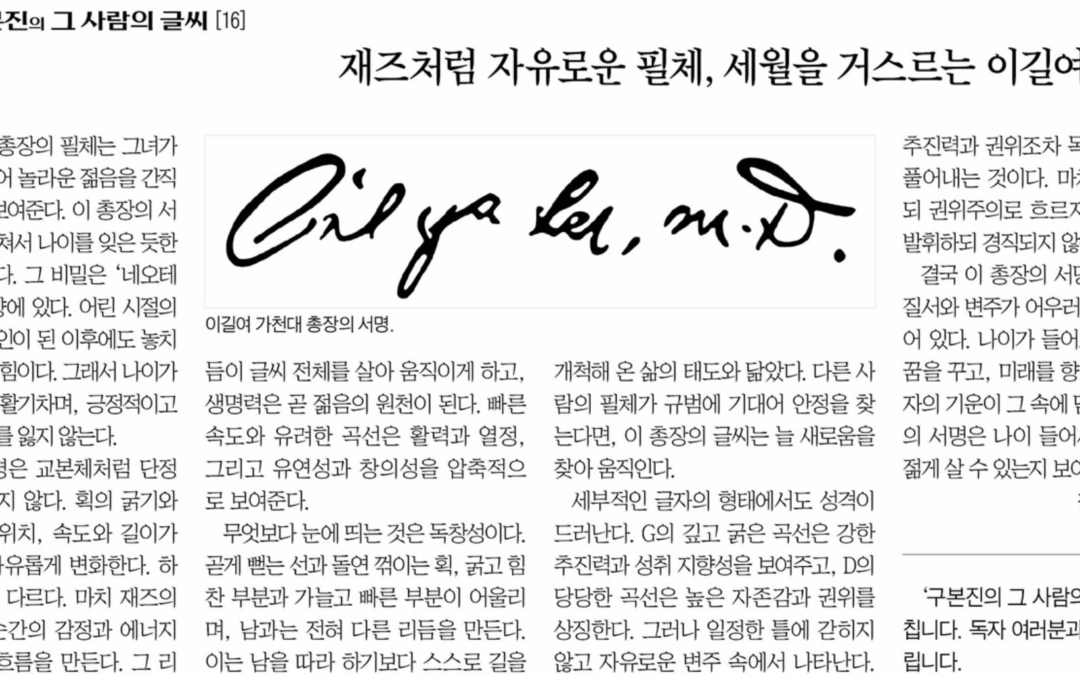 본진의 그 사람의 글씨 [16]
재즈처럼 자유로운 필체, 세월을 거스르는 이길여
총장의 필체는 그녀가
어 놀라운 젊음을 간직
보여준다. 이 총장의 서
쳐서 나이를 잊은 듯한
다. 그 비밀은 ‘네오테
향에 있다. 어린 시절의
인이 된 이후에도 놓치
힘이다. 그래서 나이가
활기차며, 긍정적이고
를 잃지 않는다.
명은 교본체처럼 단정
지 않다. 획의 굵기와
위치, 속도와 길이가
유롭게 변화한다. 하
다르다. 마치 재즈의
순간의 감정과 에너지
흐름을 만든다. 그 리
Gil ya Lee, M.D.
이길여 가천대 총장의 서명.
듬이 글씨 전체를 살아 움직이게 하고,
생명력은 곧 젊음의 원천이 된다. 빠른
속도와 유려한 곡선은 활력과 열정,
그리고 유연성과 창의성을 압축적으
로 보여준다.
무엇보다 눈에 띄는 것은 독창성이다.
곧게 뻗는 선과 돌연 꺾이는 획, 굵고 힘
찬 부분과 가늘고 빠른 부분이 어울리
며, 남과는 전혀 다른 리듬을 만든다.
이는 남을 따라 하기보다 스스로 길을
개척해 온 삶의 태도와 닮았다. 다른 사
람의 필체가 규범에 기대어 안정을 찾
는다면, 이 총장의 글씨는 늘 새로움을
찾아 움직인다.
세부적인 글자의 형태에서도 성격이
드러난다. G의 깊고 굵은 곡선은 강한
추진력과 성취 지향성을 보여주고, D의
당당한 곡선은 높은 자존감과 권위를
상징한다. 그러나 일정한 틀에 갇히지
않고 자유로운 변주 속에서 나타난다.
추진력과 권위조차 독
풀어내는 것이다. 마치
되 권위주의로 흐르지
발휘하되 경직되지 않
결국 이 총장의 서명
질서와 변주가 어우러
어 있다. 나이가 들어
꿈을 꾸고, 미래를 향
자의 기운이 그 속에 담
의 서명은 나이 들어서
젊게 살 수 있는지 보여
‘구본진의 그 사람의
칩니다. 독자 여러분과
립니다.